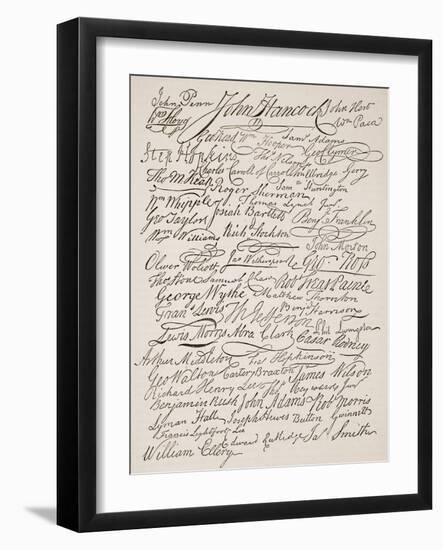 John Penn John Hancock John Hart
Wm Floyd Wm Paca
Geo Read Wm Hooper Saml Adams
Step Hopkins Thos Nelson jr Geo Clymer
Charles Carroll of Carrollton Elbridge Gerry
Tho M:Kean Roger Sherman Saml Huntington
Wm Whipple Thomas Lynch Junr
Geo Taylor Josiah Bartlett Benj Franklin
Wm Williams Richd Stockton John Morton
Oliver Wolcott Jno Witherspoon Geo Ross
Thos Stone Samuel Chase Robt Treat Paine
George Wythe Matthew Thornton
Frans Lewis Th Jefferson Benj Harrison
Lewis Morris Abra Clark Phil Livingston Cæsar Rodney
Arthur Middleton Fras Hopkinson
Geo Walton Carter Braxton James Wilson
Richard Henry Lee Thos Heyward Junr
Benjamin Rush John Adams Robt Morris
Lyman Hall Joseph Hewes Button Gwinnett
Francis Lightfoot Lee
William Ellery Edward Rutledge Jas Smith